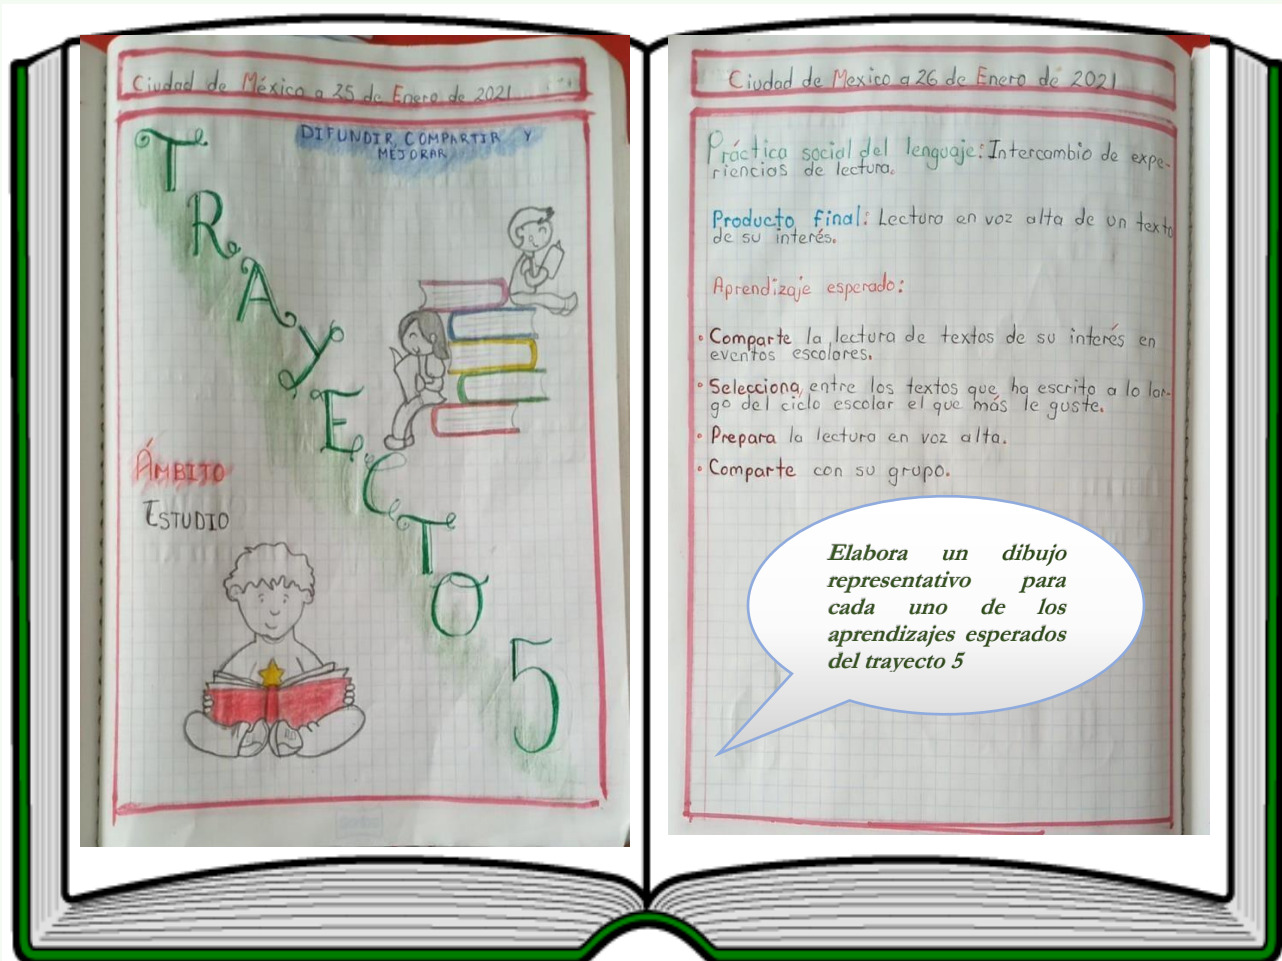 Ciudad de México a 25 de Enero de 2021
DIFUNDIR, COMPARTIR Y
MEJORAR
TRAYECTO 5
ÁMBITO
ESTUDIO
Ciudad de Mexico a 26 de Enero de 2021
Práctica social del lenguaje: Intercambio de expe-
riencias de lectura.
Producto final: Lectura en voz alta de un texto
de su interés.
Aprendizaje esperado:
• Comparte la lectura de textos de su interés en
eventos escolares.
• Selecciona, entre los textos que ha escrito a lo lar-
go del ciclo escolar el que más le guste.
• Prepara la lectura en voz alta.
• Comparte con su grupo.
Elabora un dibujo
representativo para
cada uno de los
aprendizajes esperados
del trayecto 5